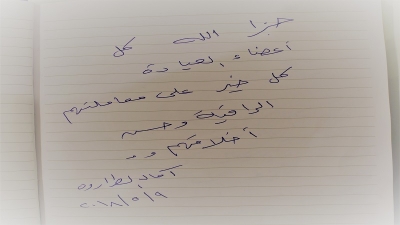 جزا الله كل
أعضاء العيادة
كل خير على معاملتهم
الراقية وحسن
أخلاقهم
٢٠١٨/٥/٩